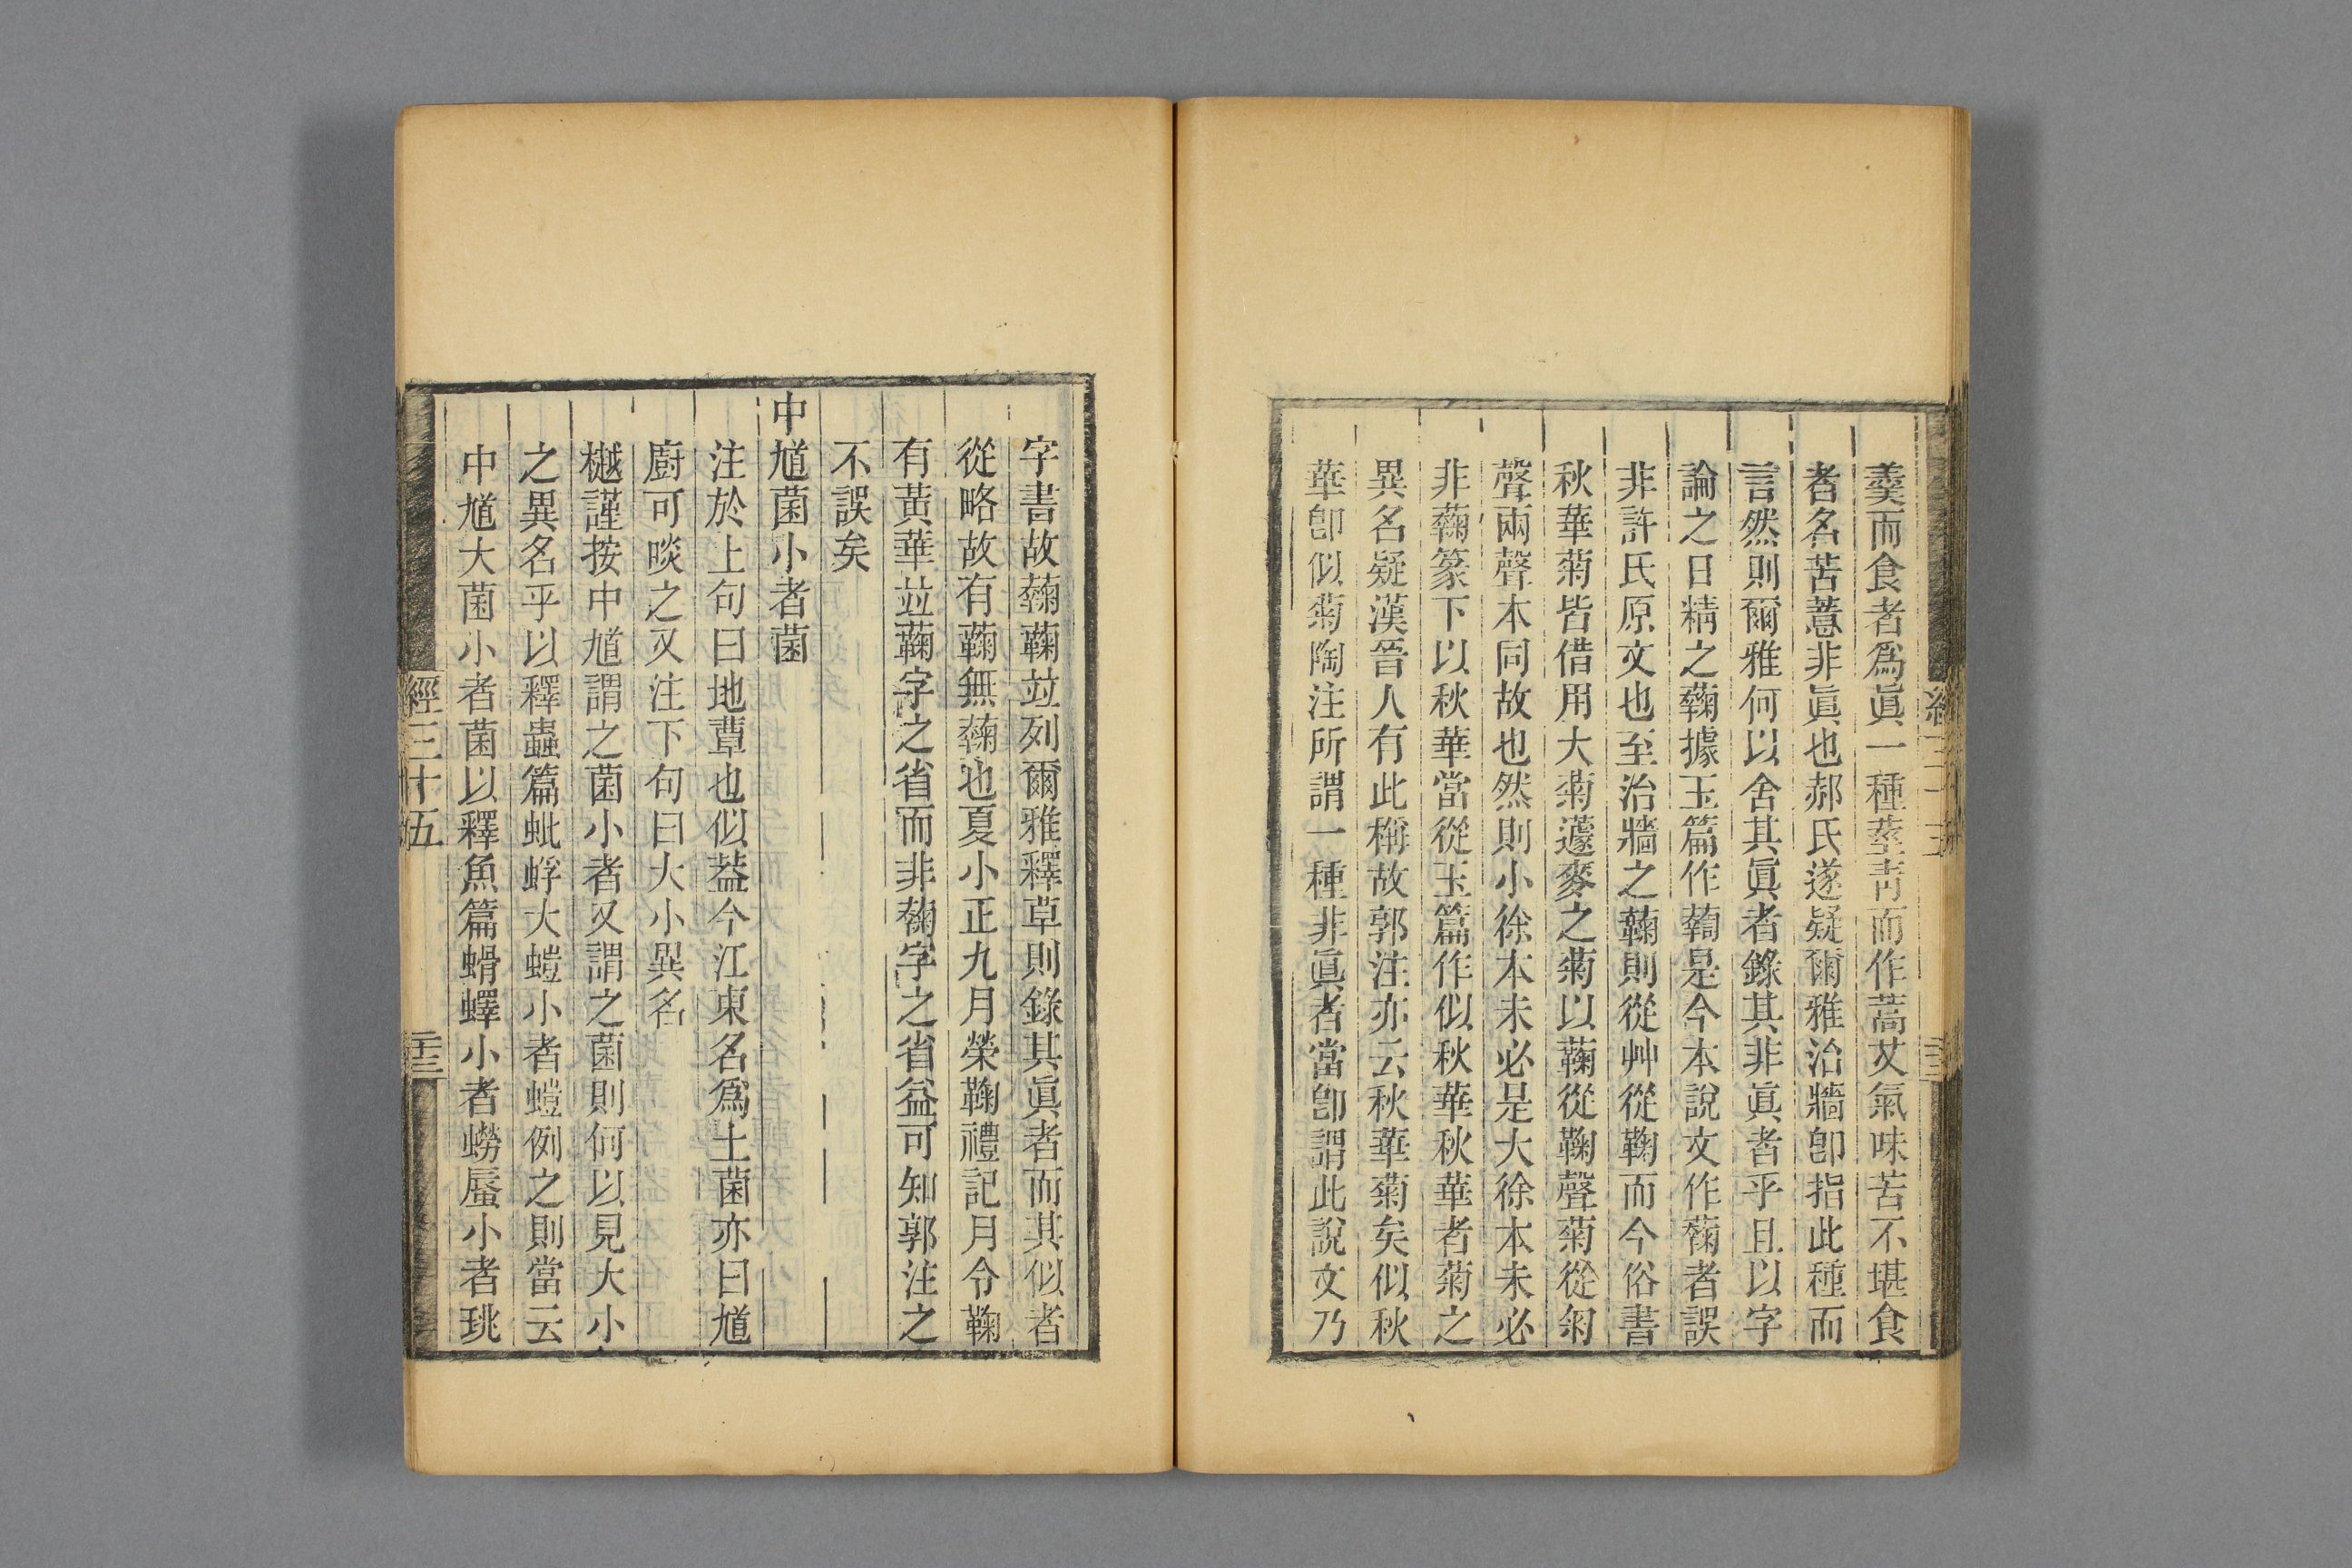 羹而食者爲眞一種莖靑而作蒿艾氣味苦不堪食
者名苦薏非眞也郝氏遂疑爾雅治牆卽指此種而
言然則爾雅何以舍其眞者錄其非眞者乎且以字
論之日精之蘜據玉篇作蘜是今本說文作蘜者誤
非許氏原文也至治牆之蘜則從艸從鞠而今俗書
秋華菊皆借用大菊蘧麥之菊以蘜從鞠聲菊從匊
聲兩聲本同故也然則小徐本未必是大徐本未必
非蘜篆下以秋華當從玉篇作似秋華秋華者菊之
異名疑漢晉人有此稱故郭注亦云秋華菊矣似秋
華卽似菊陶注所謂一種非眞者當卽謂此說文乃
字書故蘜蘜竝列爾雅釋草則錄其眞者而其似者
從略故有蘜無蘜也夏小正九月榮鞠禮記月令鞠
有黃華竝蘜字之省而非蘜字之省益可知郭注之
不誤矣
中馗菌小者菌
注於上句曰地蕈也似葢今江東名爲土菌亦曰馗
廚可啖之又注下句曰大小異名
樾謹按中馗謂之菌小者又謂之菌則何以見大小
之異名乎以釋蟲篇蚍蜉大螘小者螘例之則當云
中馗大菌小者菌以釋魚篇蜎蠌小者蟧蜃小者珧
經三十五
二十三